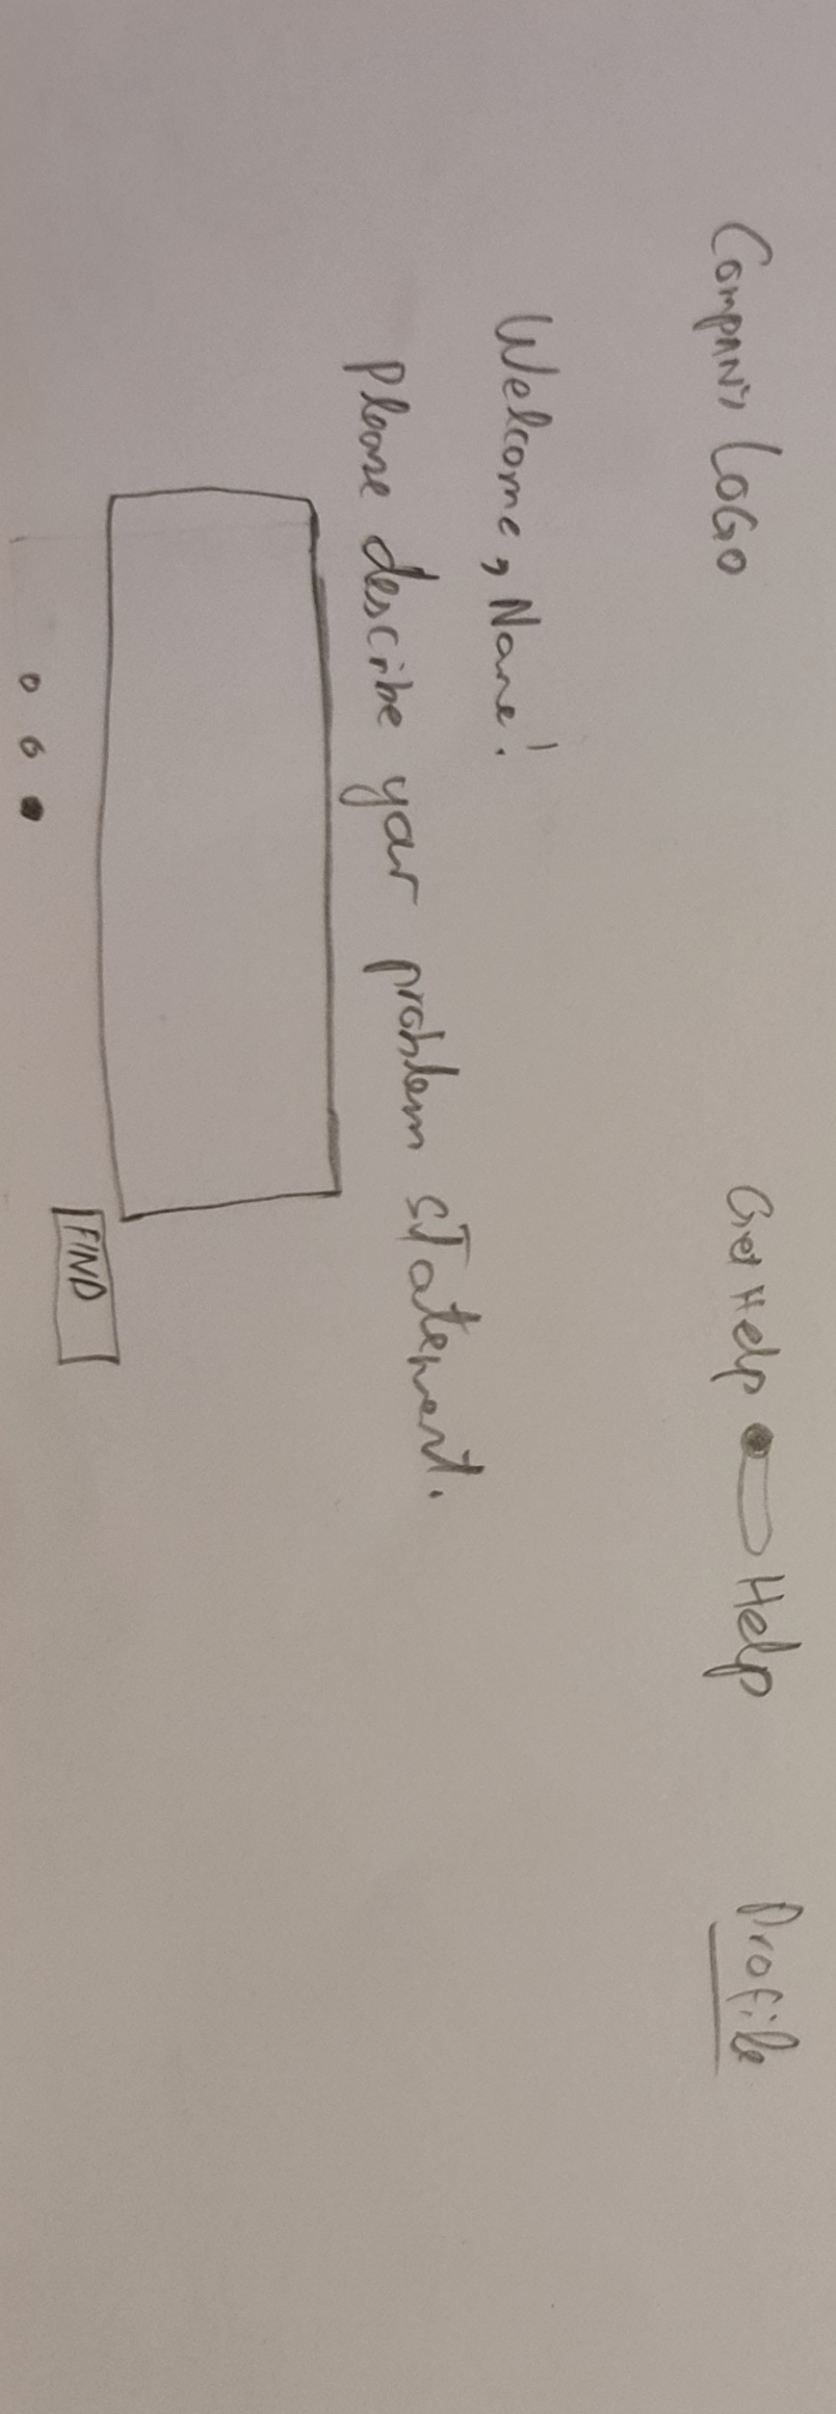 Company Logo
Get Help Help
Profile
Welcome, Name!
Please describe your problem statement.
FIND